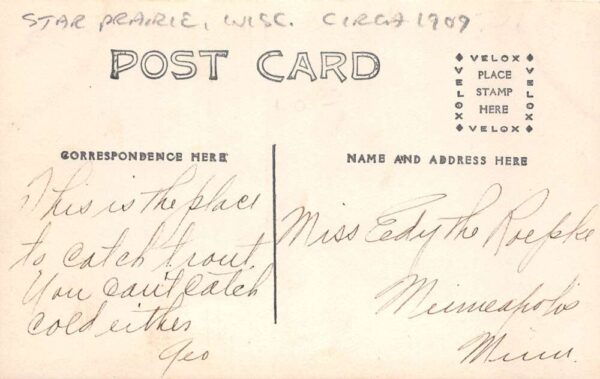 STAR PRAIRIE, WISC. CIRCA 1909
POST CARD
VELOX
VELOX
PLACE
STAMP
HERE
VELOX
VELOX
CORRESPONDENCE HERE
This is the place
to catch trout
You can't catch
cold either
Geo
NAME AND ADDRESS HERE
Miss Eedythe Roepke
Minneapolis
Minn.